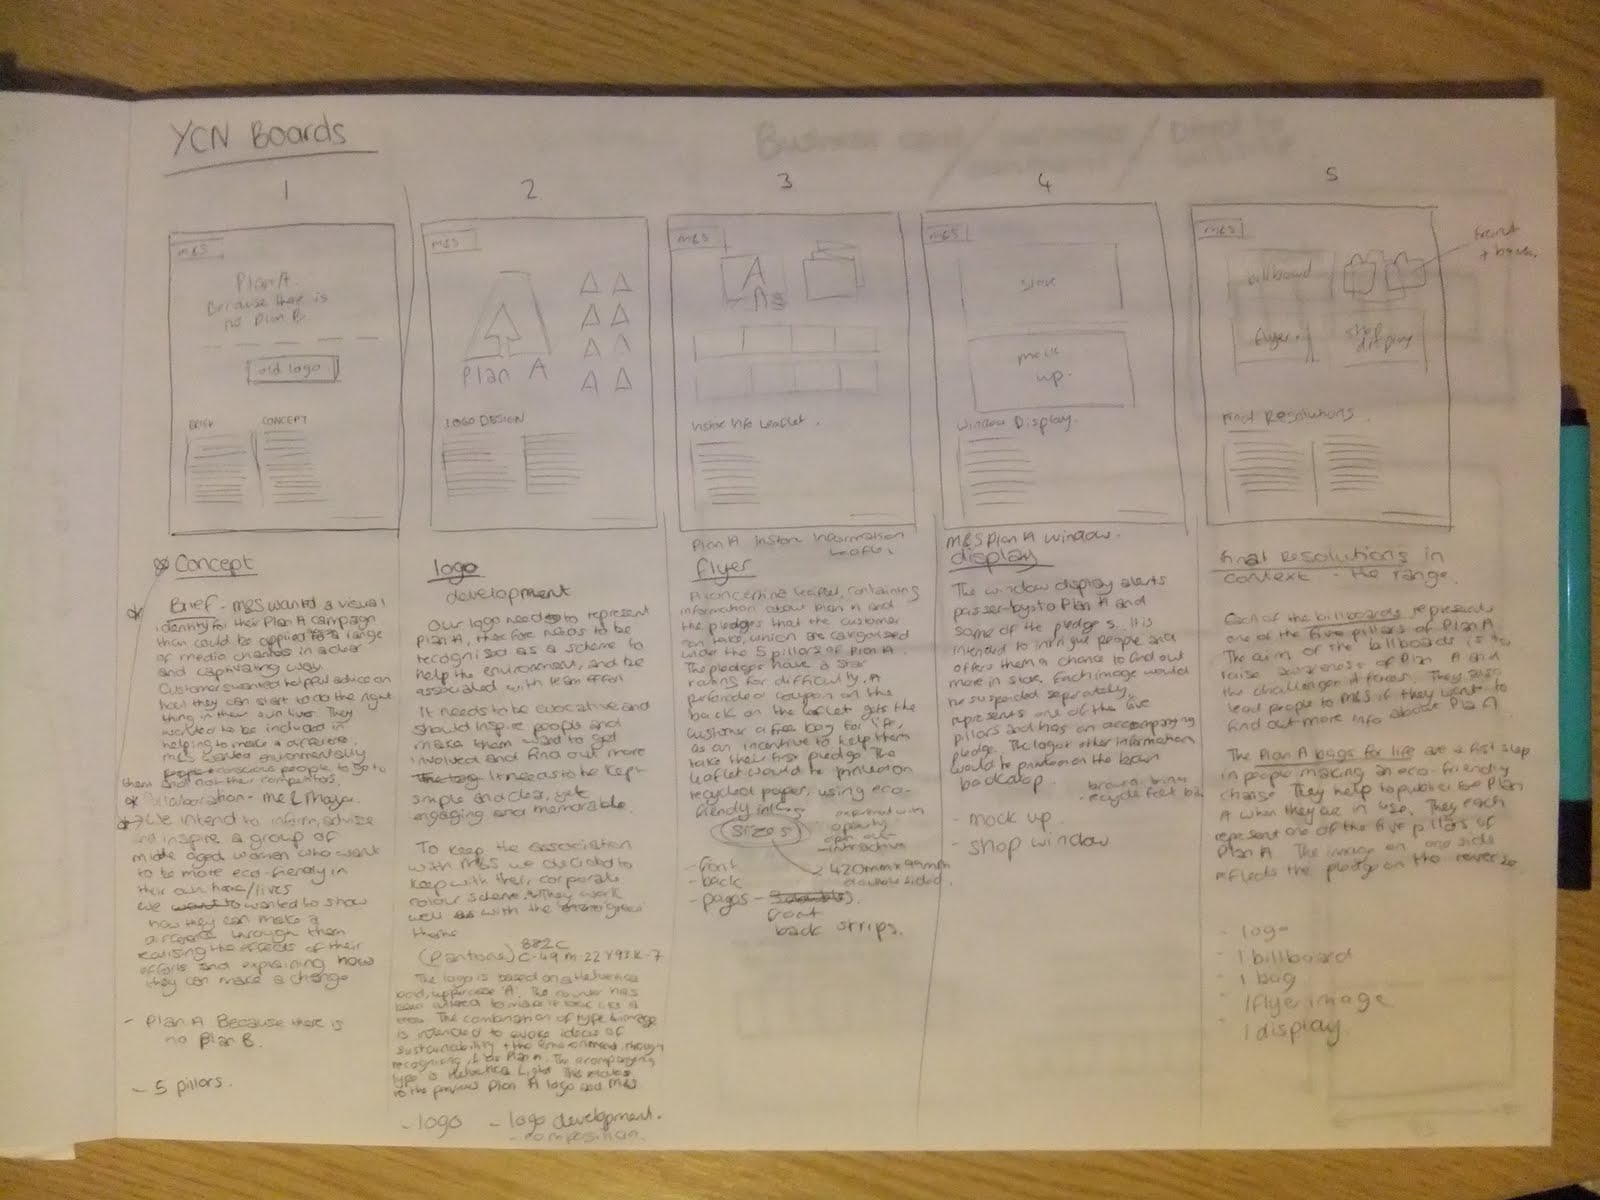 YCN Boards
1
2
3
4
5
M&S
Plan A.
Because there is
no Plan B.
old logo
BRIEF
CONCEPT
M&S
Plan A
LOGO DESIGN
M&S
A
A
Instore Info Leaflet.
M&S
store
mock
up.
Window Display.
M&S
billboard
flyer.
shop
display
Final Resolutions.
front
+ back.
Concept
Brief - M&S wanted a visual
identity for their Plan A campaign
that could be applied to a range
of media channels in a clear
and captivating way.
Customers wanted helpful advice on
how they can start to do the right
thing in their own lives. They
wanted to be included in
helping to make a difference.
M&S wanted environmentally
conscious people to go to
them and not their competitors.
Collaboration - me &
We intend to inform, advise
and inspire a group of
middle aged women who want
to be more eco-friendly in
their own home/lives
We wanted to show
how they can make a
difference through them
realising the effects of their
efforts and explaining how
they can make a change
- Plan A Because there is
no Plan B.
- 5 pillars.
logo
development
Our logo needs to represent
Plan A, therfore needs to be
recognised as a scheme to
help the environment, and be
associated with team effort
It needs to be evocative and
should inspire people and
make them want to get
involved and find out more
It needs to be kept
simple and clear, yet
engaging and memorable.
To keep the association
with M&S we decided to
keep with their corporate
colour scheme. They work
well with the green
theme
(pantone) 882C
C-49 M-22 Y93 K-7
The logo is based on a Helvetica
bold, uppercase 'A'. The counter has
been altered to make it look like a
tree. The combination of type & image
is intended to evoke ideas of
sustainability + the environment, through
recognising it as Plan A. The accompanying
type is Helvetica Light. This relates
to the previous Plan A logo and M&S
- logo
- logo development.
- composition.
Plan A Instore Information
Leaflet
flyer
A concertine leaflet, containing
information about Plan A and
the pledges that the customer
can take, which are catorgorised
under the 5 pillars of Plan A.
The pledges have a star
rating for difficulty. A
perforated coupon on the
back on the leaflet gets the
customer a free bag for life,
as an incentive to help them
take their first pledge. The
leaflet would be printed on
recycled paper, using eco-
friendly inks
sizes
experimented with
opacity
- interactive
- front
- back
- pages -
420mm x 99mm
double sided.
front
back strips.
M&S Plan A window.
display
The window display alerts
passer-bys to Plan A and
some of the pledges. It is
intended to intrigue people and
offers them a chance to find out
more in store. Each image would
be suspended separately,
represents one of the five
pillars and has an accompanying
pledge. The logo + other information
would be printed on the brown
backdrop.
- mock up.
- shop window
Final Resolutions in
context - the range.
Each of the billboards represents
one of the five pillars of Plan A.
The aim of the billboards is to
raise awareness of Plan A and
the challenges it faces. They also
lead people to M&S if they want to
find out more info about Plan A.
The Plan A bags for life are a first step
in people making an eco-friendly
change. They help to publicise Plan
A when they are in use. They each
represent one of the five pillars of
Plan A. The image on one side
reflects the pledge on the reverse
- logo
- 1 billboard
- 1 bag
- 1 flyer image
- 1 display